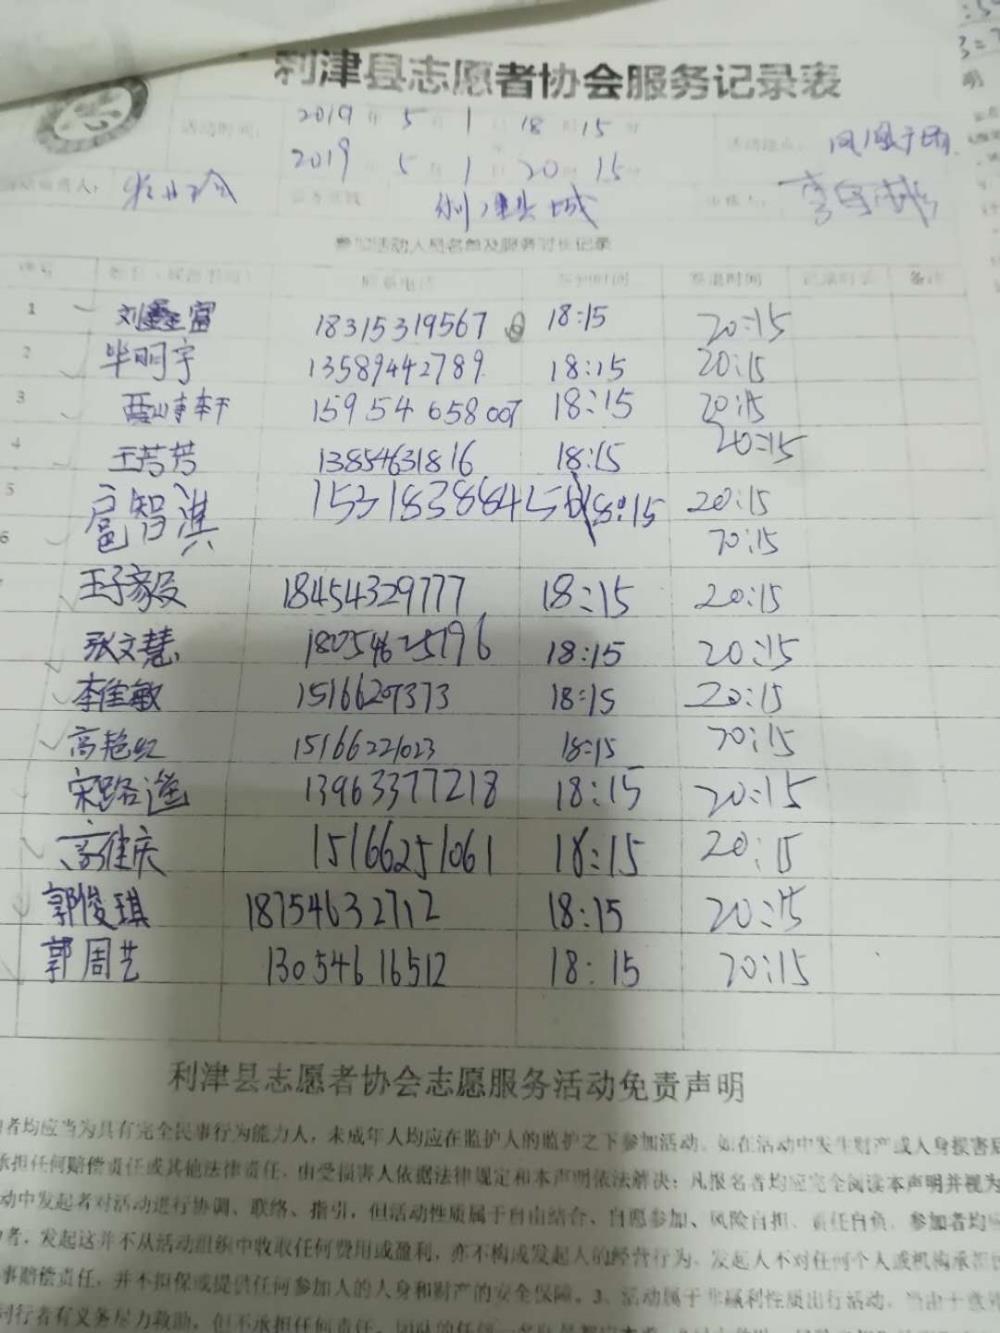 利津县志愿者协会服务记录表
活动时间： 2019 年 5 月 1 日 18 时 15 分
2019 年 5 月 1 日 20 时 15 分
参加活动人员名单及服务时长记录
序号 联系电话 签到时间 签退时间 记录时长 备注
1 刘鑫富 18315319567 18:15 20:15
2 毕明宇 13589442789 18:15 20:15
3 15954658007 18:15 20:15
4 王芳芳 13854631816 18:15 20:15
5 扈智淇 18:15 20:15
6 20:15
王子毅 18454329777 18:15 20:15
张文慧 18054625196 18:15 20:15
李佳敏 15166207373 18:15 20:15
高艳红 15166221023 18:15 20:15
宋路遥 13963377218 18:15 20:15
高佳庆 15166251061 18:15 20:15
郭俊琪 18754632712 18:15 20:15
郭周艺 13054616512 18:15 20:15
利津县志愿者协会志愿服务活动免责声明
者均应当为具有完全民事行为能力人，未成年人均应在监护人的监护之下参加活动。如在活动中发生财产或人身损害后
承担任何赔偿责任或其他法律责任，由受损害人依据法律规定和本声明依法解决；凡报名者均应完全阅读本声明并视为
动中发起者对活动进行协调、联络、指引，但活动性质属于自由结合、自愿参加、风险自担、责任自负，参加者均
者，发起这并不从活动组织中收取任何费用或盈利，亦不构成发起人的经营行为，发起人不对任何个人或机构承担
事赔偿责任，并不担保或提供任何参加人的人身和财产的安全保障。3、活动属于非赢利性质出行活动，当由于意外
同行者有义务尽力救助，但不承担任何责任